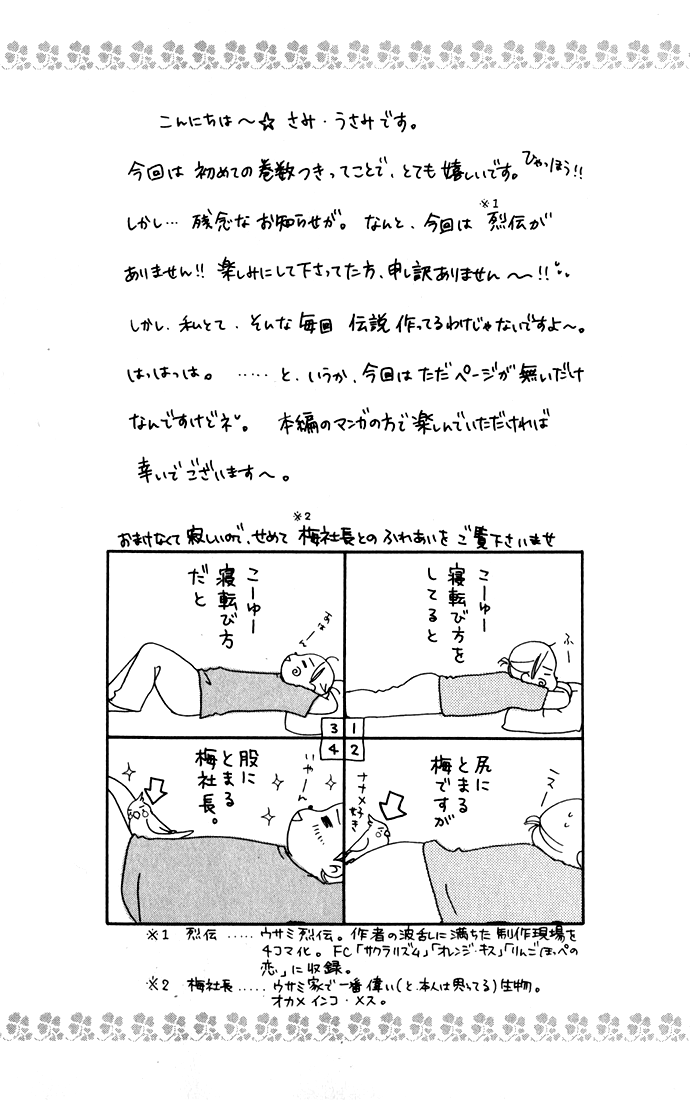 こんにちは～☆ さみ・うさみです。
今回は 初めての巻数つきってことで、とても嬉しいです。ひゃっほう!!
※1
しかし… 残念なお知らせが。 なんと、今回は 烈伝が
ありません!! 楽しみにして下さってた方、申し訳ありません～～!!
しかし、私とて、そんな毎回 伝説 作ってるわけじゃないですよ～。
はっはっは。 ……と、いうか、今回はただページが無いだけ
なんですけどネ。 本編のマンガの方で楽しんでいただければ
幸いでございます～。
※2
おまけなくて寂しいので、せめて 梅社長とのふれあいをご覧下さいませ
こーゆー
寝転び方を
してると
ふー
1
尻に
とまる
梅ですが
ナナメ好き
2
こーゆー
寝転び方
だと
3
股に
とまる
梅社長。
いやーん
4
※1 烈伝 ‥‥‥ ウサミ烈伝。作者の波乱に満ちた制作現場を
4コマ化。FC「サクラリズム」「オレンジ・キス」「りんごほっぺの
恋」に収録。
※2 梅社長 ‥‥‥ ウサミ家で一番偉い(と、本人は思ってる)生物。
オカメインコ・メス。